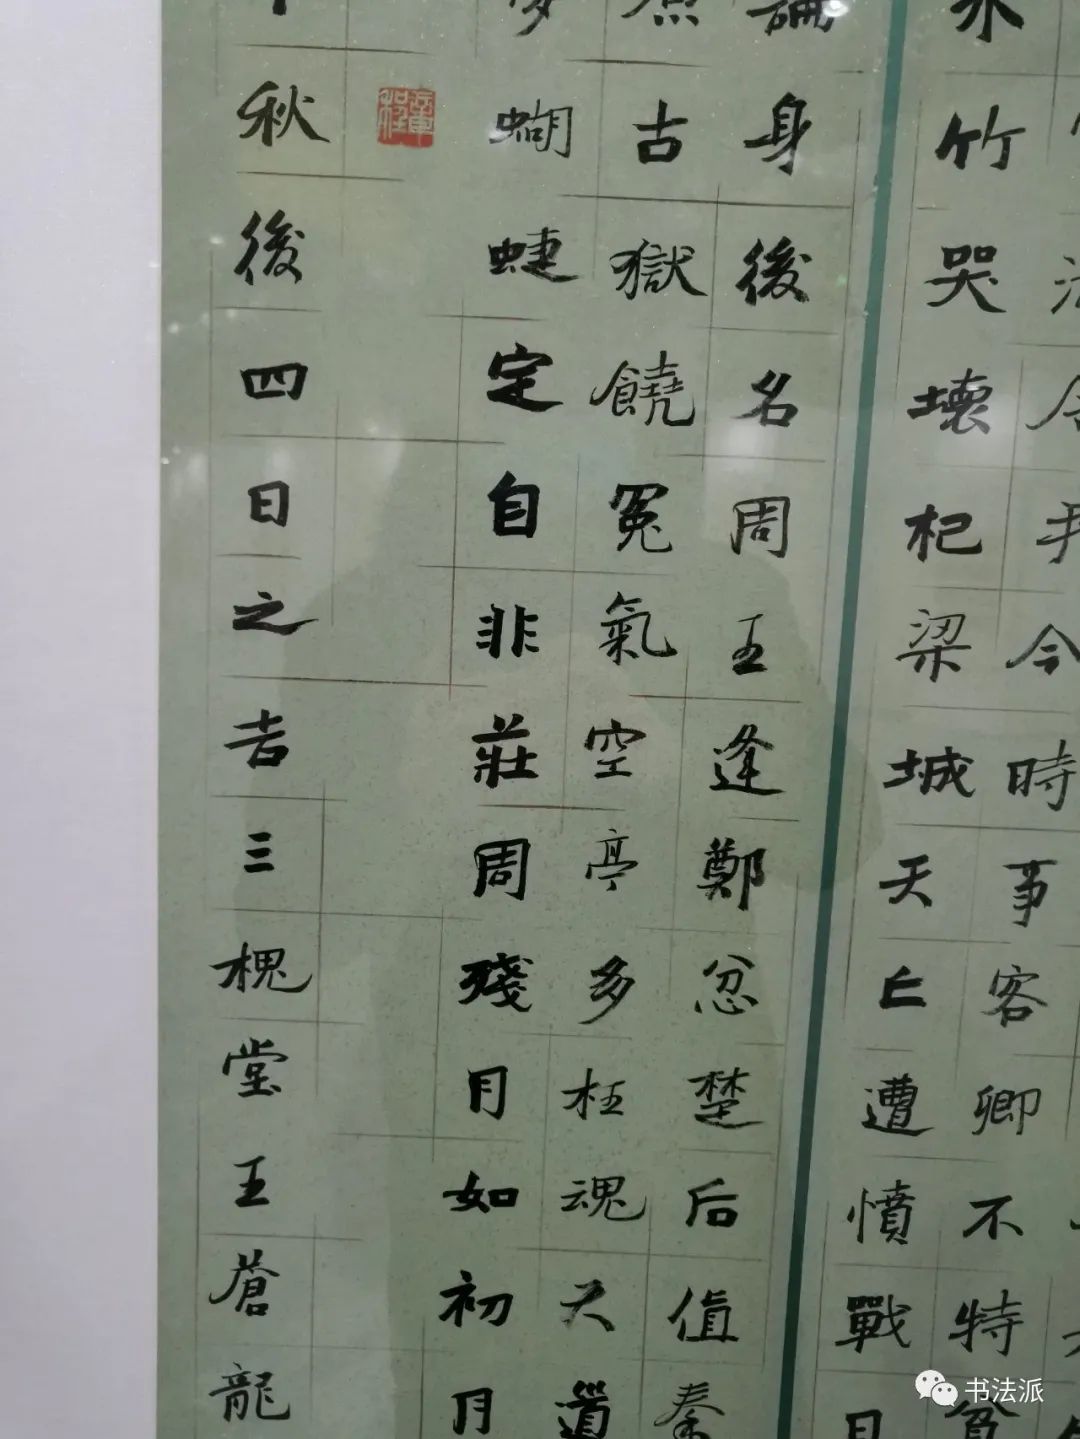 今時事客卿不特
竹哭壞杞梁城天亡遭憤戰日
論身後名周王逢鄭忿楚后值秦
古獄饒冤氣空亭多枉魂天道
蝴蜨定自非莊周殘月如初月
秋後四日之吉三槐堂王蒼龍
书法派